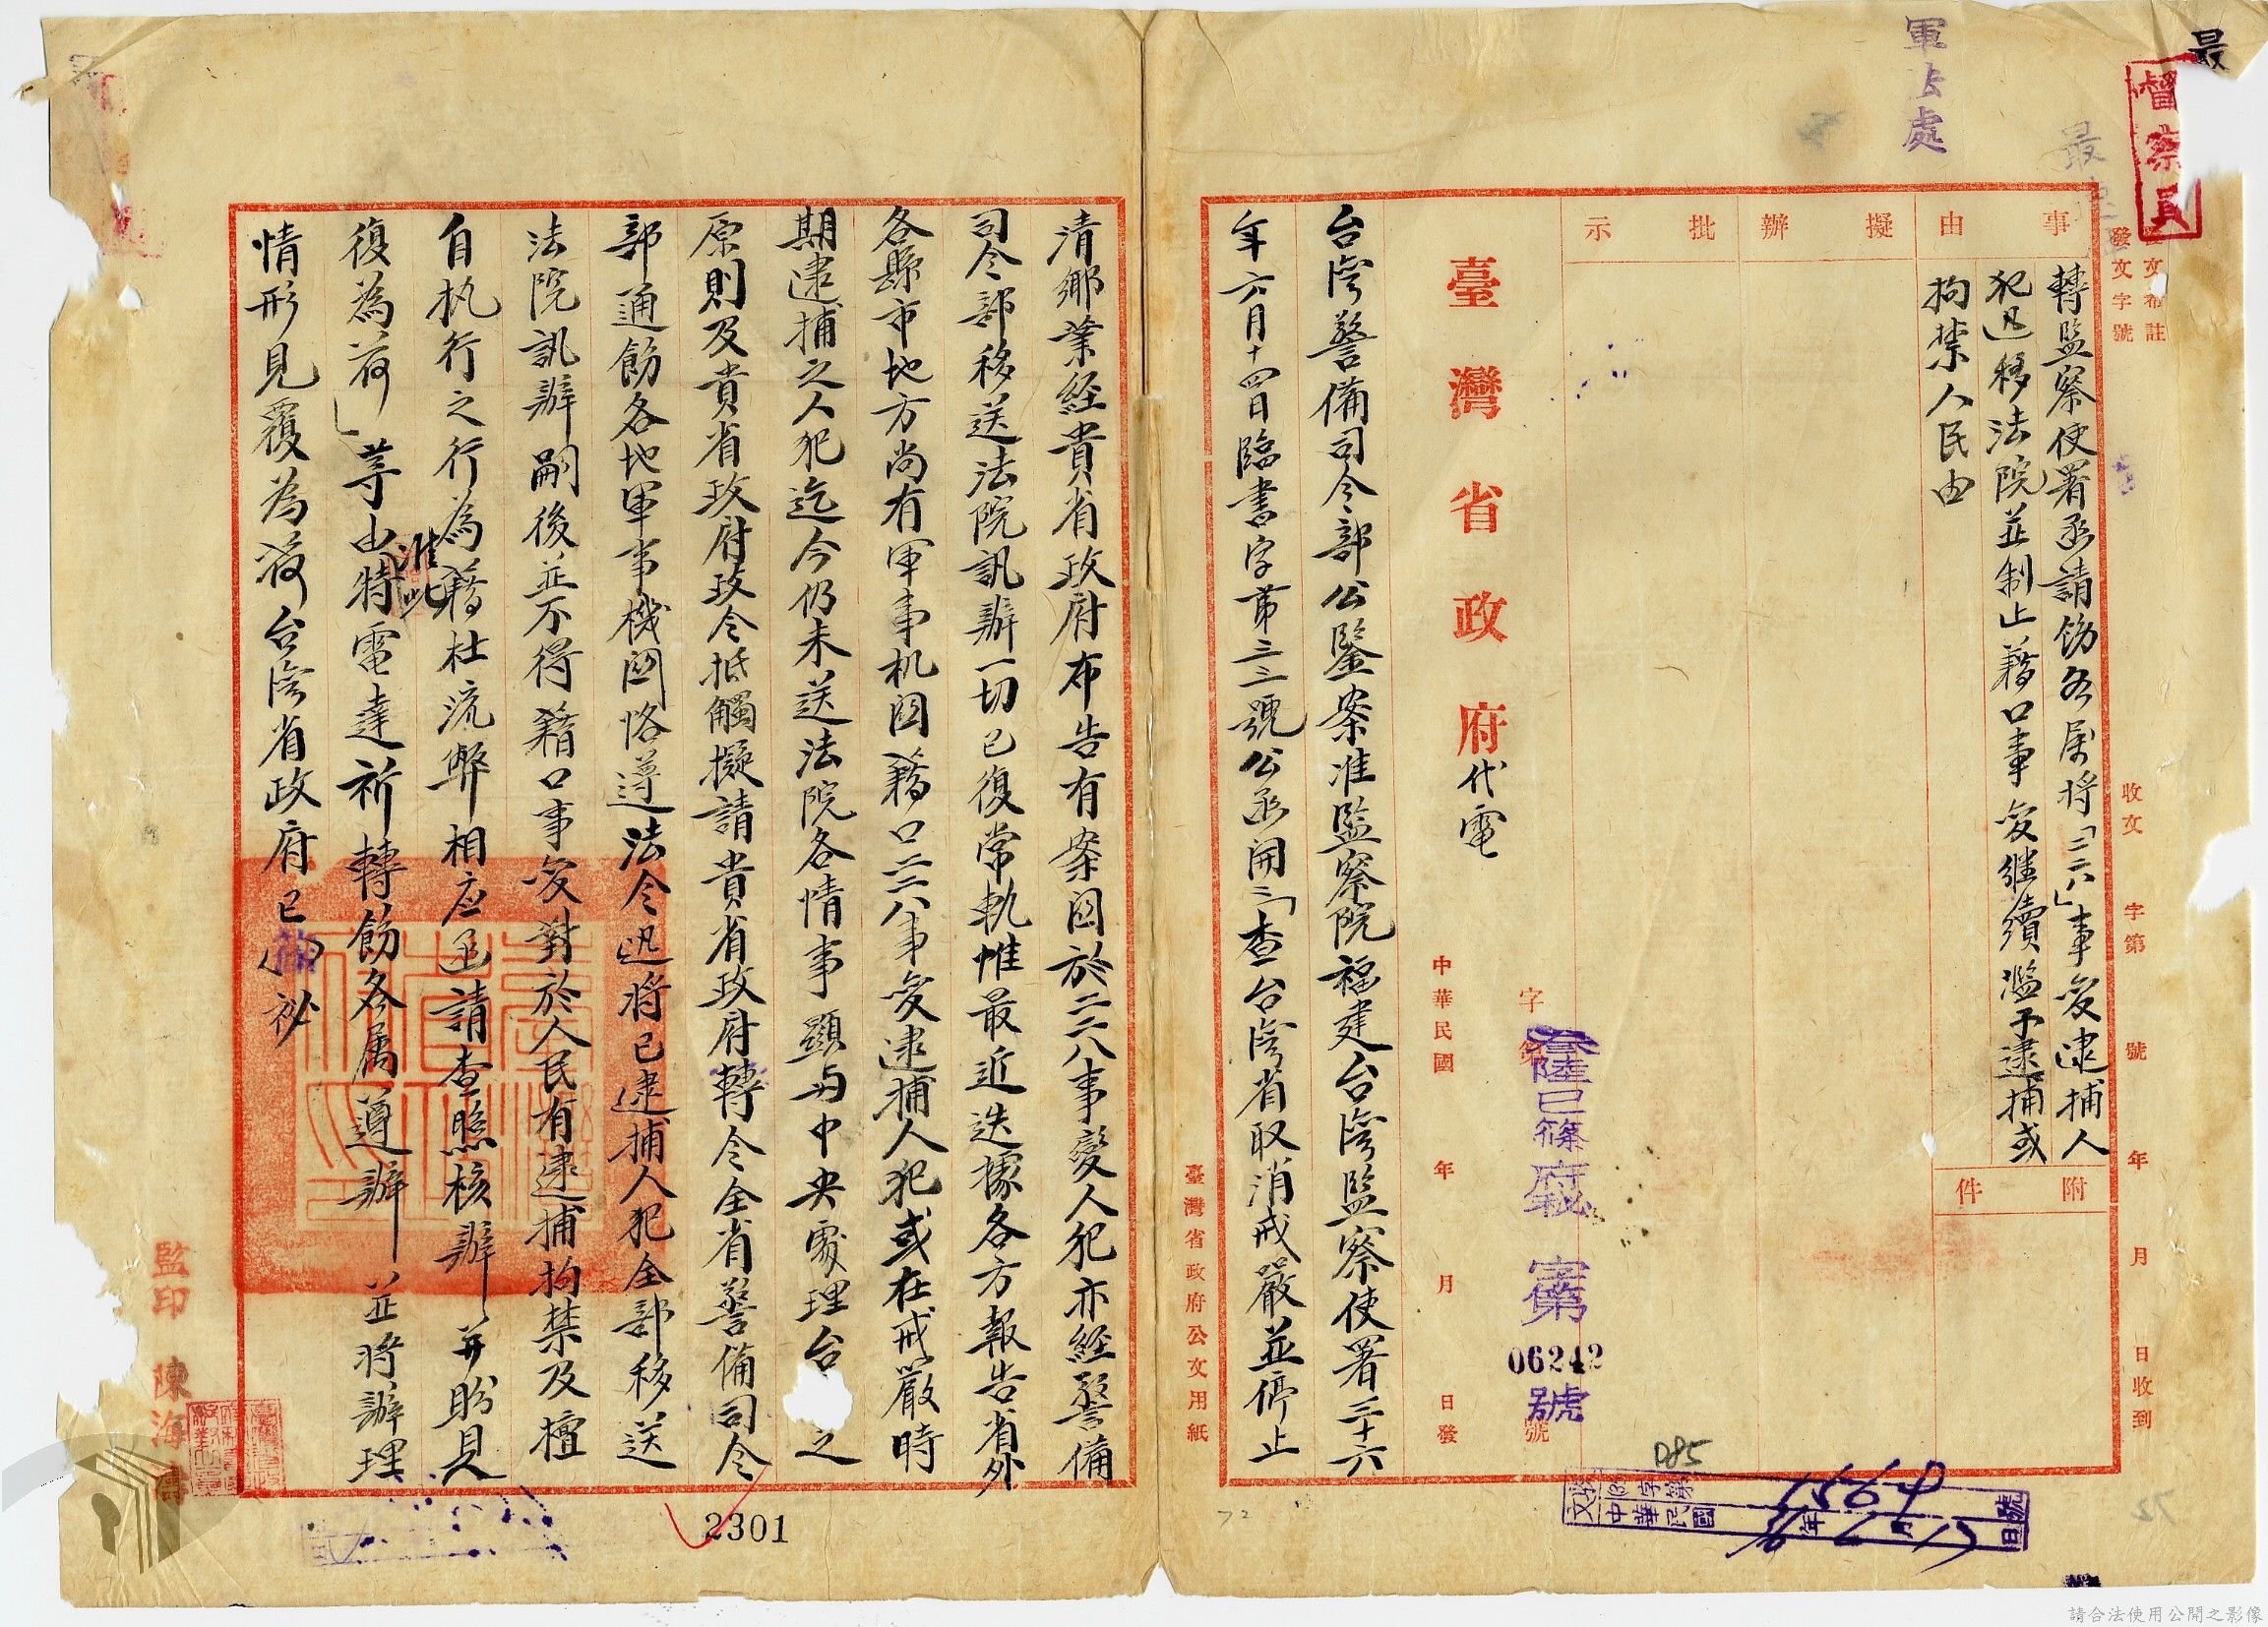 最
督察員
軍法處
最速
發文字號
文 附註
收文 字第 號 年 月 日收到
事由
轉監察使署函請飭各屬將「二二八」事变逮捕人
犯迅移法院並制止藉口事变继續濫予逮捕或
拘禁人民由
附件
擬辦
批示
字第 號
叁陸巳篠府秘 字第 06242 號
臺灣省政府代電
中華民國 年 月 日發
台湾警備司令部公鑒案准監察院福建台湾監察使署三十六
年六月十四日臨書字第三三號公函開：「查台湾省取消戒嚴並停止
臺灣省政府公文用紙
清鄉業経貴省政府布告有案因於二二八事變人犯亦経警備
司令部移送法院訊辦一切已復常軌惟最近迭據各方報告省外
各縣市地方尚有軍事机関藉口二二八事变逮捕人犯或在戒嚴時
期逮捕之人犯迄今仍未送法院各情事顕与中央處理台 之
原則及貴省政府政令抵觸擬請貴省政府轉令全省警備司令
部通飭各地軍事機関恪遵法令迅將已逮捕人犯全部移送
法院訊辦嗣後並不得藉口事变對於人民有逮捕拘禁及擅
自执行之行為藉杜流弊相应函請查照核辦并盼見
復為荷」等由准此特電達祈轉飭各属遵辦並将辦理
情形見覆為荷台湾省政府巳(篠)秘
監印 陳海
2301
085
72
文 字第 1564 號
中華民國 36年 6月 17日
請合法使用公開之影像